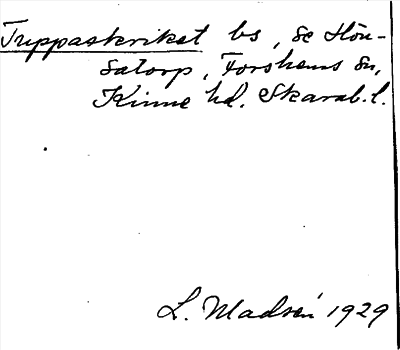 Trippaskriket bs, se Hön-
satorp, Forshems sn,
Kinne hd. Skarab.l.
L. Madsén 1929